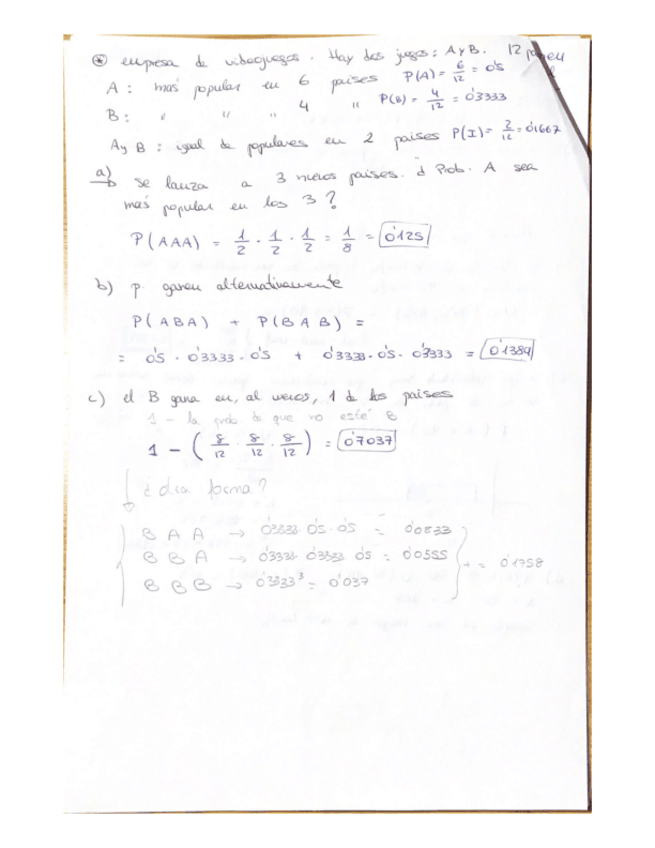 ⊛ empresa de videojuegos. Hay dos juegos: A y B. 12 países
A: más popular en 6 países P(A) = 6/12 = 0'5
B: " " " 4 " P(B) = 4/12 = 0'3333
A y B: igual de populares en 2 países P(I) = 2/12 = 0'1667
a) se lanza a 3 nuevos países. ¿Prob. A sea
más popular en los 3?
P(AAA) = 1/2 · 1/2 · 1/2 = 1/8 = 0'125
b) p. ganen alternativamente
P(ABA) + P(BAB) =
= 0'5 · 0'3333 · 0'5 + 0'3333 · 0'5 · 0'3333 = 0'1389
c) el B gana en, al menos, 1 de los países
1 - la prob de que no esté B
1 - (8/12 · 8/12 · 8/12) = 0'7037
¿otra forma?
B A A → 0'3333 · 0'5 · 0'5 = 0'0833
B B A → 0'3333 · 0'3333 · 0'5 = 0'0555
B B B → 0'3333³ = 0'037
+ = 0'1758